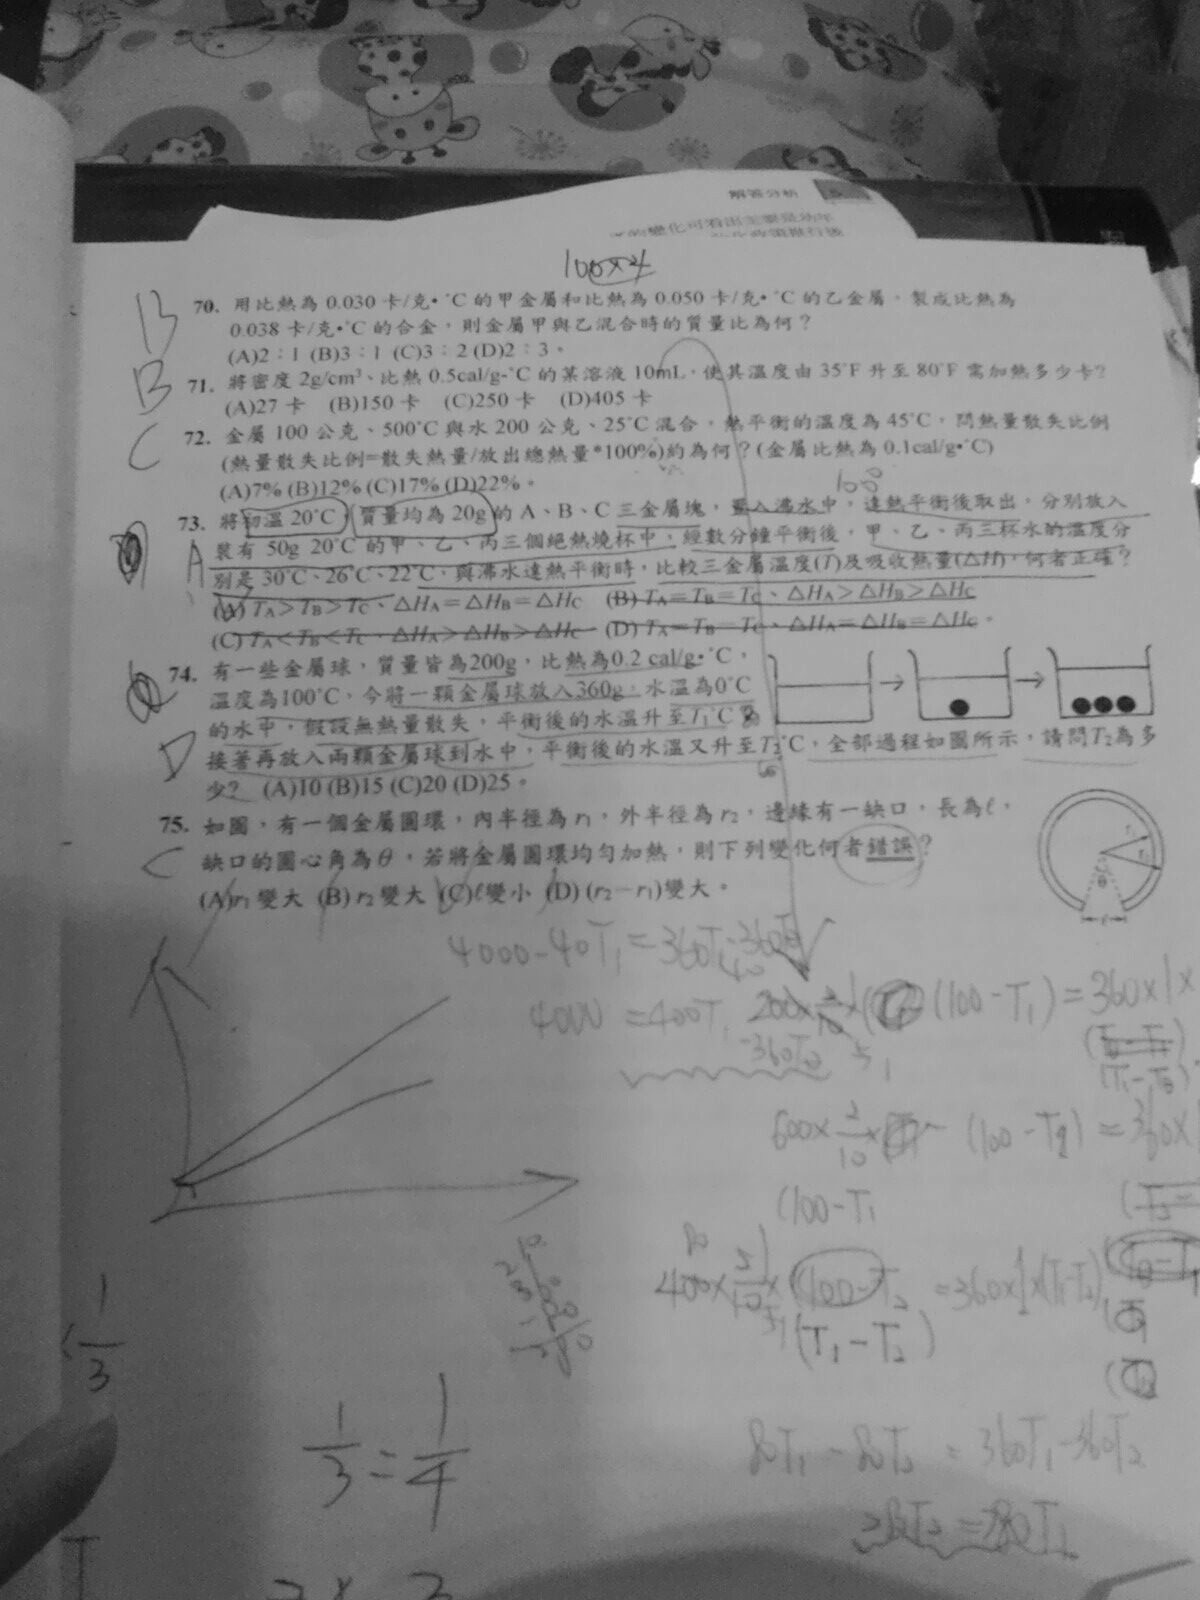 解答分析
的變化可看出主要是幼年
100×4
B
70. 用比熱為 0.030 卡/克•˚C 的甲金屬和比熱為 0.050 卡/克•˚C 的乙金屬，製成比熱為
0.038 卡/克•˚C 的合金，則金屬甲與乙混合時的質量比為何？
(A)2：1 (B)3：1 (C)3：2 (D)2：3。
B
71. 將密度 2g/cm³、比熱 0.5cal/g-˚C 的某溶液 10mL，使其溫度由 35˚F 升至 80˚F 需加熱多少卡?
(A)27 卡 (B)150 卡 (C)250 卡 (D)405 卡
C
72. 金屬 100 公克、500˚C 與水 200 公克、25˚C 混合，熱平衡的溫度為 45˚C，問熱量散失比例
(熱量散失比例=散失熱量/放出總熱量*100%)約為何？(金屬比熱為 0.1cal/g•˚C)
(A)7% (B)12% (C)17% (D)22%。
100
73. 將初溫 20˚C，質量均為 20g 的 A、B、C 三金屬塊，置入沸水中，達熱平衡後取出，分別放入
A
裝有 50g 20˚C 的甲、乙、丙三個絕熱燒杯中，經數分鐘平衡後，甲、乙、丙三杯水的溫度分
別是 30˚C、26˚C、22˚C，與沸水達熱平衡時，比較三金屬溫度(T)及吸收熱量(△H)，何者正確？
(A) TA＞TB＞TC、△HA＝△HB＝△HC (B) TA＝TB＝TC、△HA＞△HB＞△HC
(C) TA＜TB＜TC、△HA＞△HB＞△HC (D) TA＝TB＝TC、△HA＝△HB＝△HC。
74. 有一些金屬球，質量皆為200g，比熱為0.2 cal/g•˚C，
溫度為100˚C，今將一顆金屬球放入360g，水溫為0˚C
的水中，假設無熱量散失，平衡後的水溫升至T1˚C，
D
接著再放入兩顆金屬球到水中，平衡後的水溫又升至T2˚C，全部過程如圖所示，請問T2為多
少？ (A)10 (B)15 (C)20 (D)25。
75. 如圖，有一個金屬圓環，內半徑為 r1，外半徑為 r2，邊緣有一缺口，長為ℓ，
C
缺口的圓心角為θ，若將金屬圓環均勻加熱，則下列變化何者錯誤？
(A)r1 變大 (B) r2 變大 (C)ℓ變小 (D) (r2－r1)變大。
r1
r2
θ
ℓ
4000-40T1=360T1-360T2
4000=400T1
-360T2
(100-T1)=360×1×
600×2/10×
(100-T2)=360×1
(100-T1
(100-T2=360×1×(T1-T2)
(T1-T2)
80T1-80T2=360T1-360T2
280T2=280T1
1/3
1/3=1/4